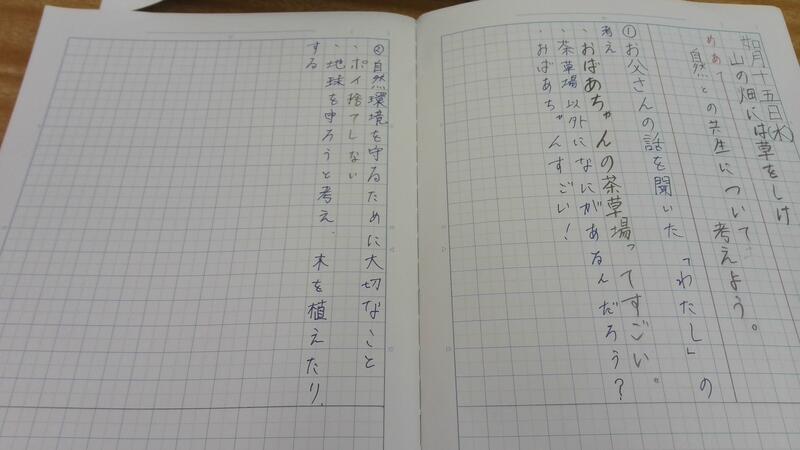 如月十五日(水)
山の畑には草をしけ
めあて
自然との共生について考えよう。
①お父さんの話を聞いた「わたし」の
考え
・おばあちゃんの茶草場ってすごい。
・茶草場以外になにがあるんだろう?
・おばあちゃんすごい!
②自然環境を守るために大切なこと
・ポイ捨てしない
・地球を守ろうと考え、木を植えたり、
する